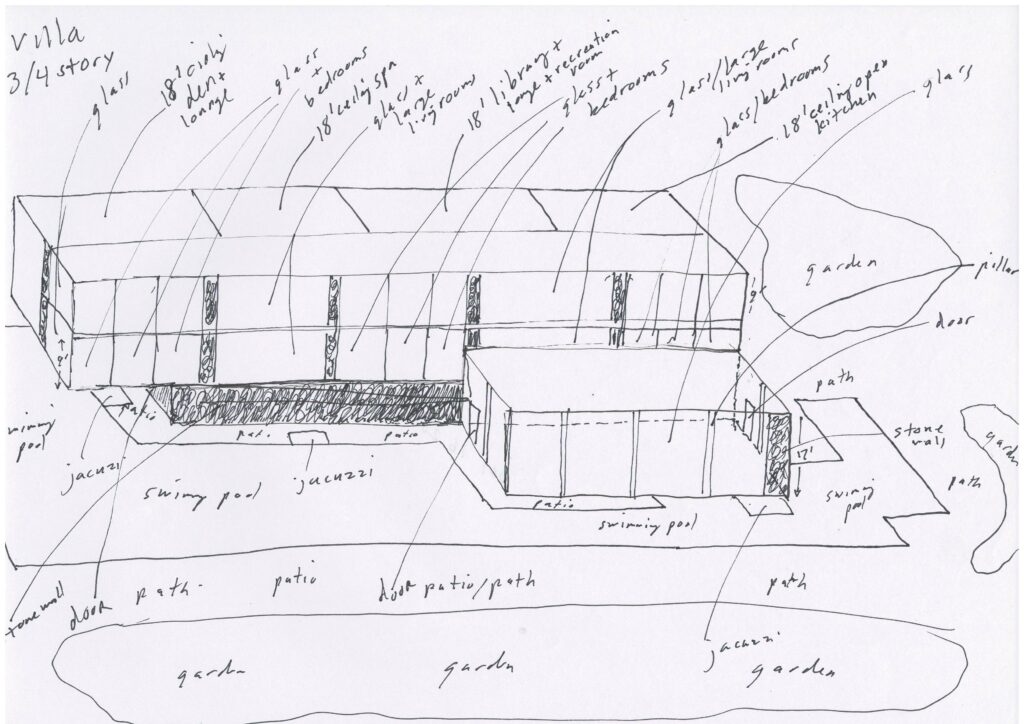 villa
3/4 story
glass
18' ceiling
den +
lounge
glass
+
bedrooms
18' ceiling spa
glass +
large
living rooms
18' library +
lounge + recreation
room
glass +
bedrooms
glass/large
living rooms
glass/bedrooms
18' ceiling open
kitchen
glass
garden
pillar
door
9'
path
patio
swimming
pool
jacuzzi
patio
patio
jacuzzi
swimming pool
stone
wall
17'
swimming
pool
path
garden
patio
swimming pool
stone wall
door
path
patio
door
patio/path
path
jacuzzi
garden
garden
garden